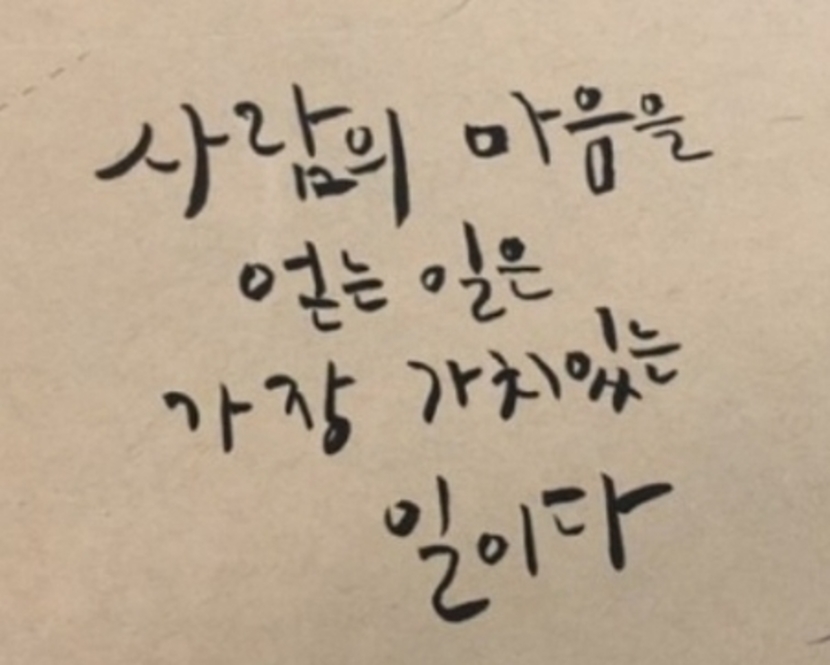 사람의 마음을
얻는 일은
가장 가치있는
일이다